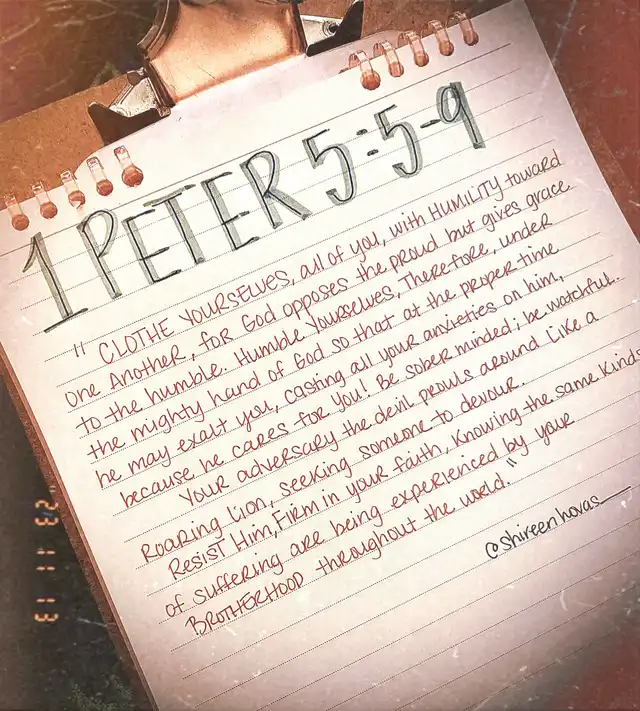 1 PETER 5:5-9
"CLOTHE YOURSELVES, all of you, with HUMILITY toward
one Another, for God opposes the proud but gives grace
to the humble. Humble Yourselves, Therefore, under
the mighty hand of God so that at the proper time
he may exalt you, casting all your anxieties on him,
because he cares for you! Be sober minded; be watchful.
Your adversary the devil prowls around like a
Roaring Lion, seeking someone to devour.
Resist Him, Firm in your faith, knowing the same kinds
of suffering are being experienced by your
BROTHERHOOD throughout the world."
@shireenhovas
23 11 13